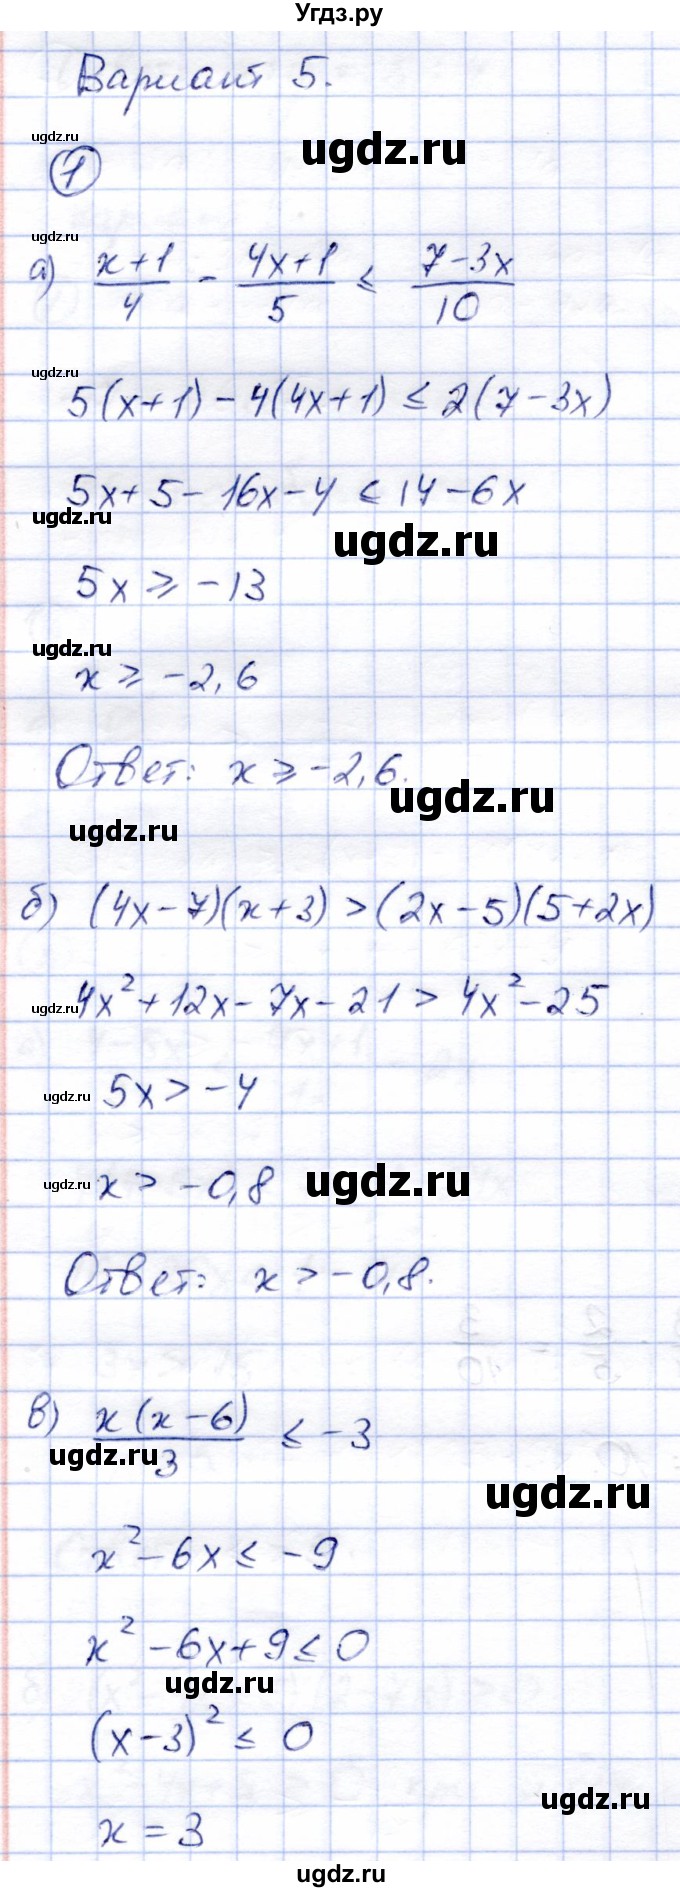 Угдз.ру
Вариант 5.
ugdz.ru
ugdz.ru
1
ugdz.ru
а) (x+1)/4 - (4x+1)/5 ≤ (7-3x)/10
ugdz.ru
5(x+1)-4(4x+1) ≤ 2(7-3x)
5x+5-16x-4 ≤ 14-6x
ugdz.ru
ugdz.ru
5x ≥ -13
ugdz.ru
x ≥ -2,6
Ответ: x ≥ -2,6.
ugdz.ru
ugdz.ru
б) (4x-7)(x+3) > (2x-5)(5+2x)
ugdz.ru
4x²+12x-7x-21 > 4x²-25
ugdz.ru
5x > -4
ugdz.ru
x > -0,8
ugdz.ru
Ответ: x > -0,8.
в) x(x-6)/3 ≤ -3
ugdz.ru
ugdz.ru
x²-6x ≤ -9
x²-6x+9 ≤ 0
ugdz.ru
(x-3)² ≤ 0
ugdz.ru
x = 3
ugdz.ru